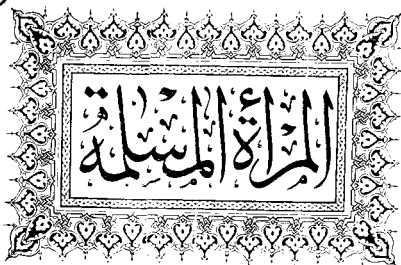 المرأة المسلمة